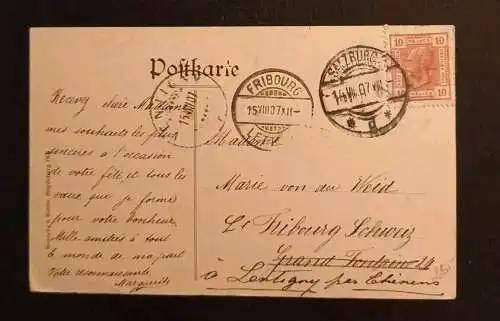 Postkarte
FRIBOURG
15.VIII.07.XII-
LETTR
SALZBURG
14.VIII.07
10 10
10 10
Recevez chère Madame
mes souhaits les plus
sincères à l'occasion
de votre fête, et tous les
vœux que je forme
pour votre bonheur.
Mille amitiés à tout
le monde de ma part
Votre reconnaissante
Marguerite
Madame
Marie von der Weid
Fribourg Schweiz
Grand Fontaine 24
à Lentigny par Chénens